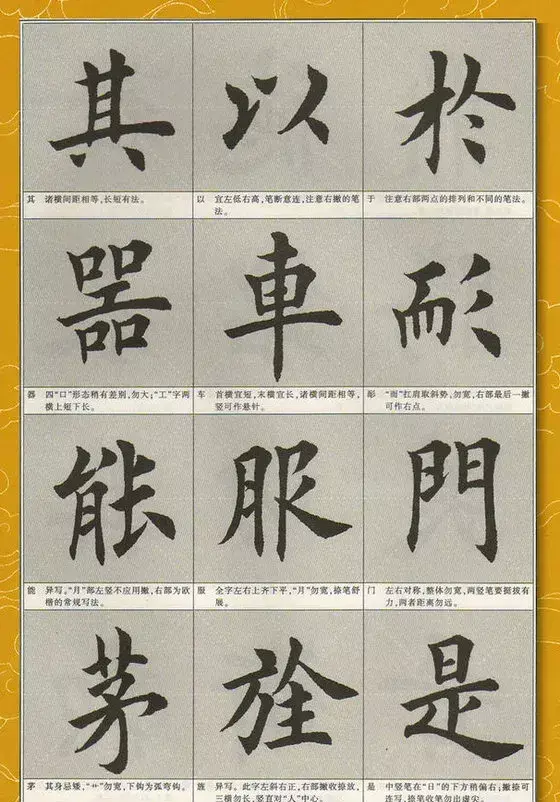 其 以 於
其 诸横间距相等,长短有法。
以 宜左低右高,笔断意连,注意右撇的笔
法。
于 注意右部两点的排列和不同的笔法。
噐 車 耏
器 四“口”形态稍有差别,勿大;“工”字两
横上短下长。
车 首横宜短,末横宜长,诸横间距相等,
竖可作悬针。
耏 “而”扛肩取斜势,勿宽,右部最后一撇
可作右点。
能 服 門
能 异写。“月”部左竖不应用撇,右部为欧
楷的常规写法。
服 全字左右上齐下平,“月”勿宽,捺笔舒
展。
门 左右对称,整体勿宽,两竖笔要挺拔有
力,两者距离勿远。
茅 是
茅 其身忌矮,“艹”勿宽,下钩为弧弯钩。
异写。此字左斜右正,右部撇收捺放,
三横勿长,竖直对“人”中心。
是 中竖笔在“日”的下方稍偏右;撇捺可
连写,捺笔收笔勿出虚尖。